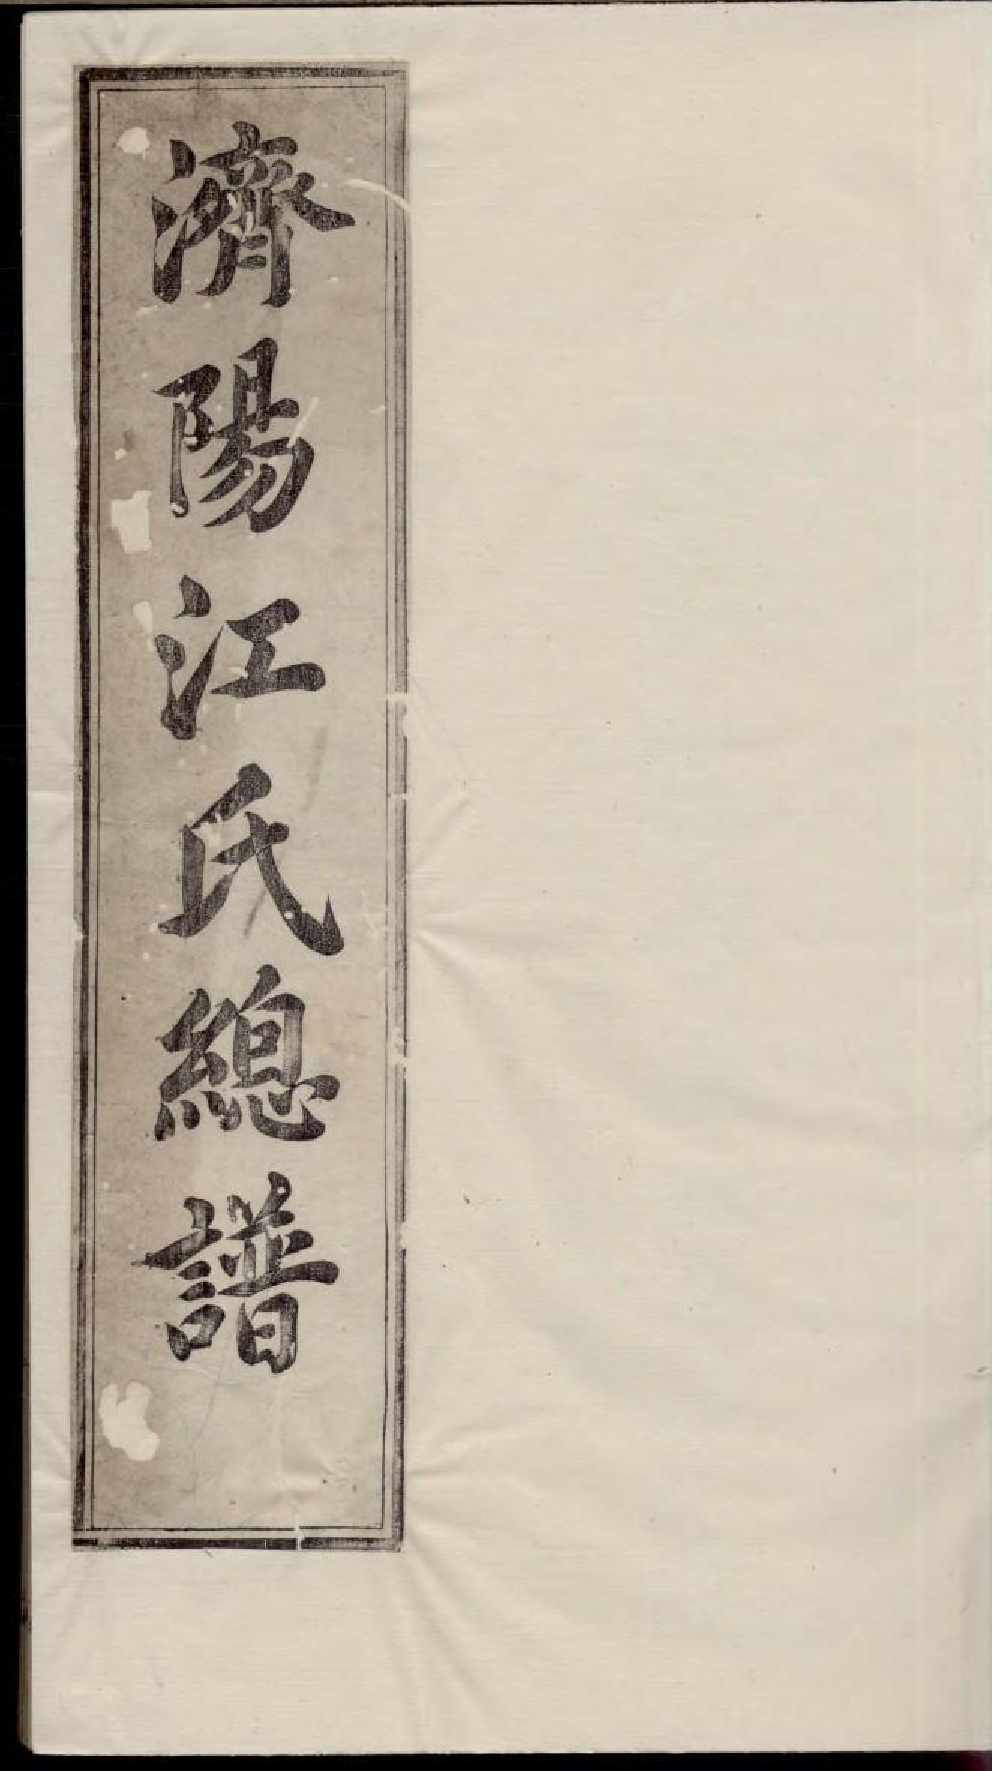 濟陽江氏總譜